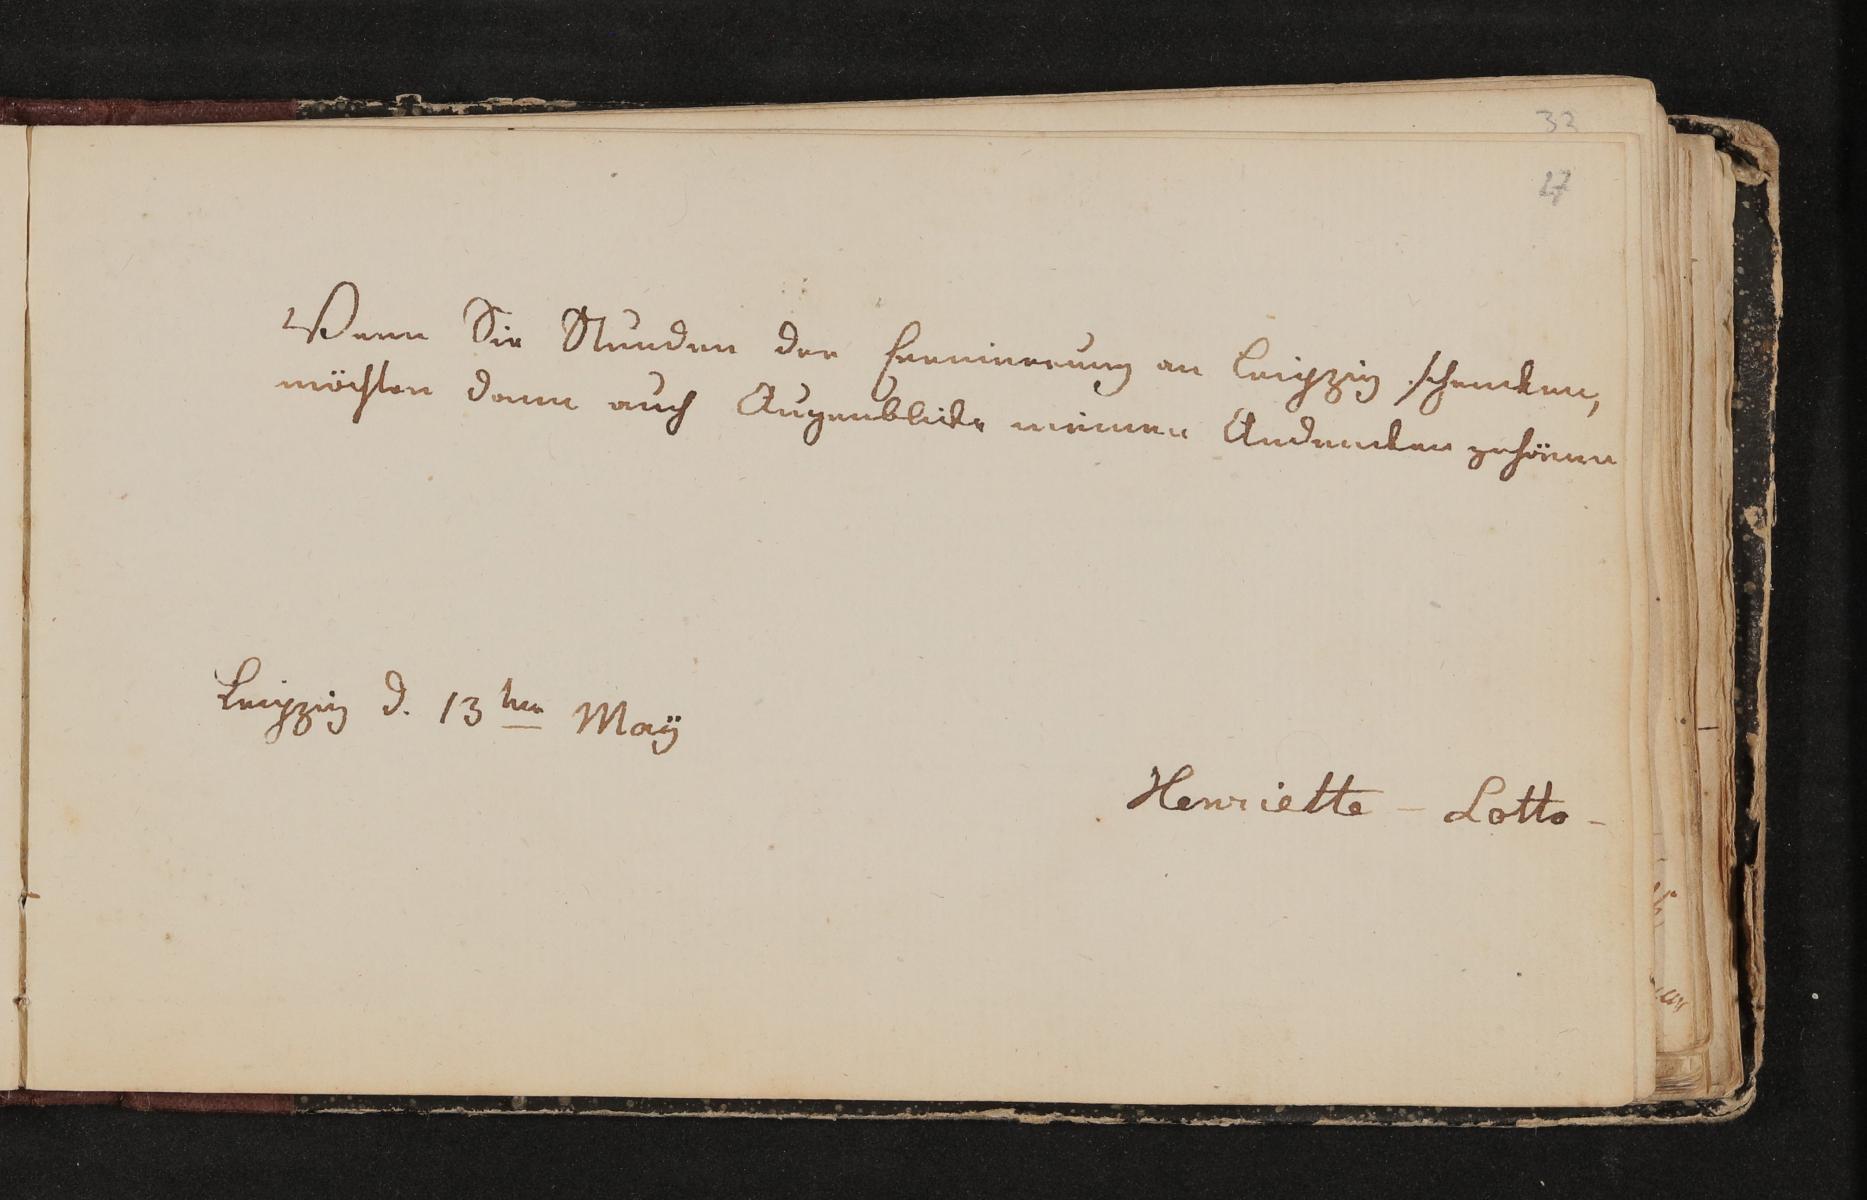 33
27
Wenn Sie Stunden der Erinnerung an Leipzig schencken,
möchten dann auch Augenblicke meinen Andencken gehören
Leipzig d. 13ten Maÿ
Henriette - Lotto -